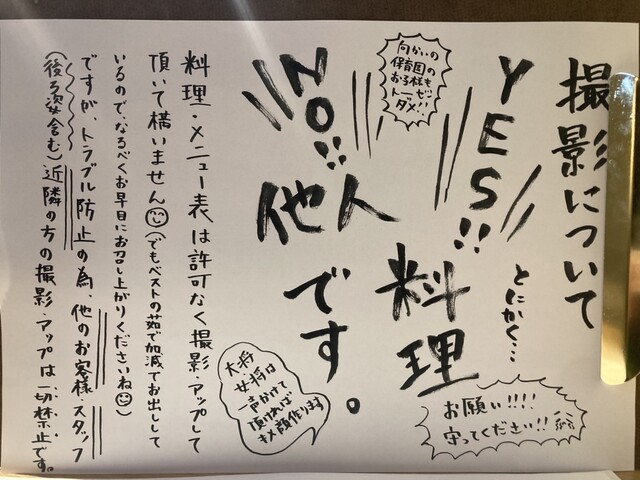 撮影について
とにかく…
YES!! 料理
NO!! 他人です。
向かいの
保育園の
お子様も
トーゼン
ダメ!!
お願い!!!!
守ってください!!
大将
女将は
一声かけて
頂ければ
キメ顔作ります
料理・メニュー表は許可なく撮影・アップして
頂いて構いません(でもベストの茹で加減でお出しして
いるので、なるべくお早目にお召し上がりくださいね)
ですが、トラブル防止の為、他のお客様、スタッフ
(後ろ姿含む)近隣の方の撮影・アップは一切禁止です。